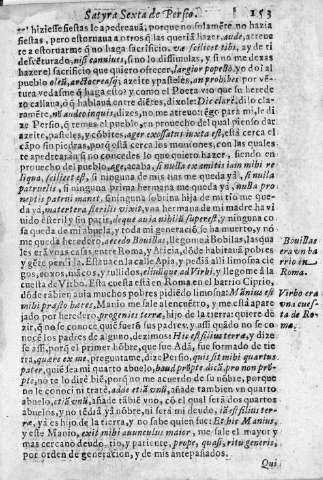 Satyra Sexta de Persio. 153
hiziesse fiestas le apedreauã, porque no solamẽte no hazia
fiestas, pero estoruaua a otros q̃ las queriã hazer, aude, atreue
te a estoruarme q̃ no haga sacrificio. væ scilicet tibi, ay de ti
desuẽturado, nisi connives, si no lo dissimulas, y si no me dexas
hazer el sacrificio que quiero ofrecer, largior popello, yo doi al
pueblo oleũ, artocreasq̃; azeite y pasteles, an prohibes por vẽ-
tura vedasme q̃ haga esto? y como el Poeta vio que su herede
ro callaua, ò q̃ hablaua entre diẽtes, dixole: Die clarè, dilo cla-
ramẽte, nõ audeo inquis, dizes, no me atreuo: ego para mi, le di
ze Persio, q̃ temes el pueblo, en prouecho del qual pienso dar
azeite, pasteles, y cõbites, ager exossatus iuxta est, està cerca el
cãpo sin piedras, porq̃ està cerca los montones, con las quales
te apedrearàn si no concedes lo que quiero hazer, siendo en
prouecho del pueblo, age, acaba, si nulla ex amitis iam mihi re
liqua, scilicet est, si ninguna de mis tias me queda yà, si nulla
patruelis, si ninguna prima hermana me queda yà, nulla pro
neptis patrui manet, sininguna sobrina hija de mi tio me que-
da yà, matertera sterilis vixit, vna hermana de mi madre ha vi
uido esteril y sin parir, deque auia nihilũ superest, y ninguna co
sa queda de mi abuela, y toda mi generaciõ se ha muerto, y nó
me queda heredero, accedo Bouillas, llegome à Bobilas, las qua
les erã vnas casas entre Roma, y Aricia, dõde habitauã pobres
y gẽte perdida. Estauã en la calle Apia, y pedia allì limosna cie-
gos, coxos, mãcos, y tullidos, cliuumque ad Virbi, y llegome à la
cuesta de Virbo. Esta cuesta està en Roma en el barrio Ciprio,
dõde tãbien auia muchos pobres pidiẽdo limosna: Mãnius est
mihi præsto hæres, Manio me sale al encuẽtro, y me està apare
jado por heredero, progenies terræ, hijo de la tierra: quiere de
zir, q̃ no se conoce quiẽ fuerõ sus padres, y assi quãdo no se co-
nocẽ los padres de alguno, dezimos Hic est filius terræ, y dize-
se assi, porq̃ el primer hõbre, que fue Adã, fue formado de tie
rra, quære ex me, preguntame, dize Persio, quis sit mihi quartus
pater, quiẽ sea mi quarto abuelo, haud prõptè dicã, pro non prõ
ptè, no te lo dirè biẽ, porq̃ no me acuerdo de su nõbre, porque
no le conocì ni tratè, adde etiã vnũ, añade tambien vn quarto
abuelo, adde etiã vnũ, añade tãbiẽ vno, cõ el qual serã dos quartos
abuelos, y no tẽdrà yà nõbre, ni serà mi deudo, iã est filius ter-
ræ, yà es hijo de la tierra, y no sabe quien fue: Et hic Manius,
y este Manio, exit mihi auunculus maior, me sale el mayor y
mas cercano deudo, tio, y pariente, prope, quasi, ritu generis,
por orden de generacion, y de mis antepasados.
Qui
Bouillas
era vn ba
rrio en
Roma.
Virbo era
vna cues-
ta de Ro-
ma.